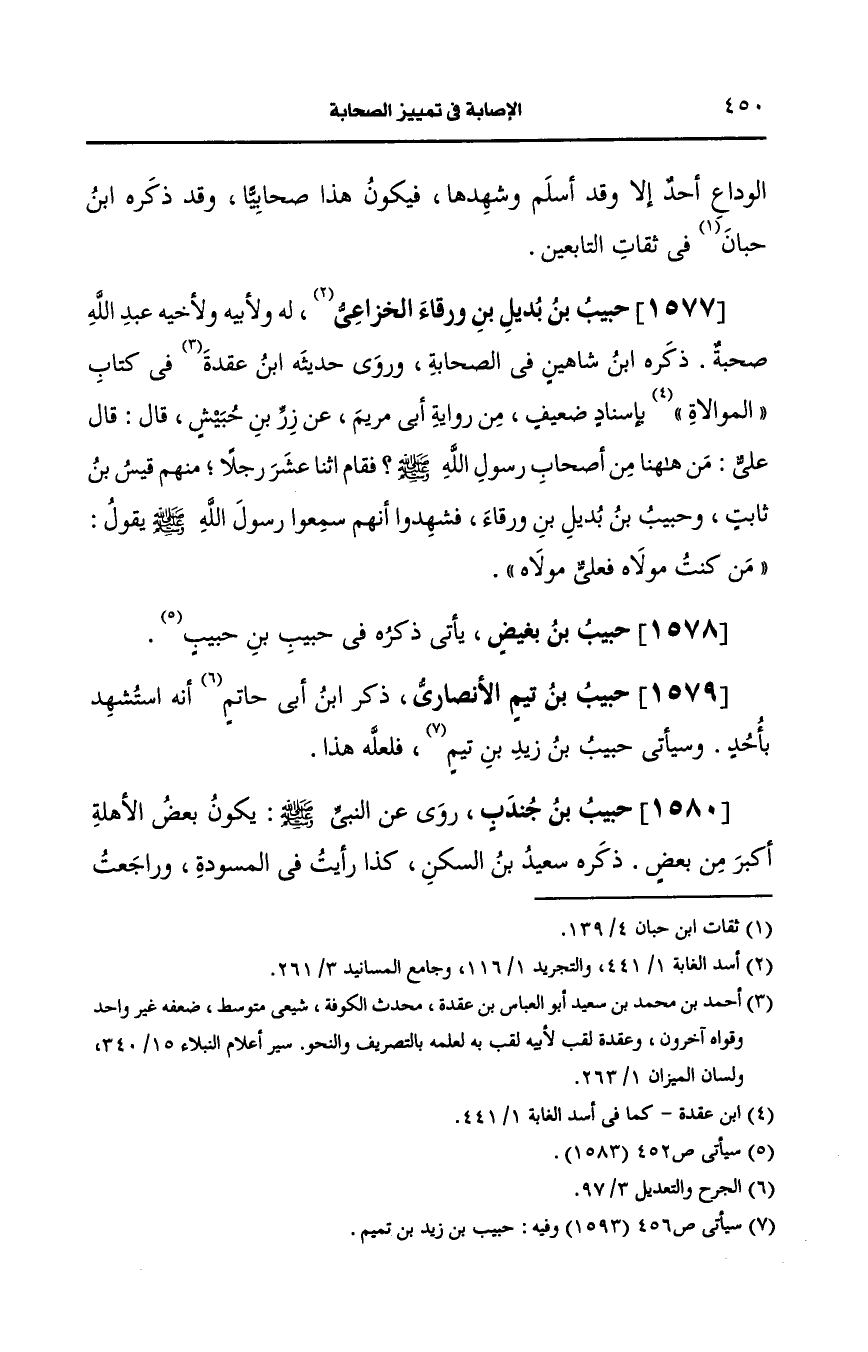 ٤٥٠ الإصابة فى تمييز الصحابة
الوداعِ أحدٌ إلا وقد أسلَم وشهِدها ، فيكونُ هذا صحابِيًّا ، وقد ذكَره ابنُ
حبانَ(١) فى ثقاتِ التابعين .
[١٥٧٧] حبيبُ بنُ بُديلِ بنِ ورقاءَ الخزاعِىُّ(٢) ، له ولأبيه ولأخيه عبدِ اللَّهِ
صحبةٌ . ذكَره ابنُ شاهينٍ فى الصحابةِ ، وروَى حديثَه ابنُ عقدةَ(٣) فى كتابِ
« الموالاةِ »(٤) بإسنادٍ ضعيفٍ ، مِن روايةِ أبى مريمَ ، عن زِرِّ بنِ حُبَيْشٍ ، قال : قال
علىٌّ : مَن هلهنا مِن أصحابِ رسولِ اللَّهِ ﷺ ؟ فقام اثنا عشَرَ رجلًا ؛ منهم قيسُ بنُ
ثابتٍ ، وحبيبُ بنُ بُديلِ بنِ ورقاءَ ، فشهِدوا أنهم سمِعوا رسولَ اللَّهِ ﷺ يقولُ :
« مَن كنتُ مولَاه فعلىٌّ مولَاه » .
[١٥٧٨] حبيبُ بنُ بغيضٍ ، يأتى ذكرُه فى حبيبِ بنِ حبيبٍ(٥) .
[١٥٧٩] حبيبُ بنُ تيمٍ الأنصارىُّ ، ذكر ابنُ أبى حاتمٍ(٦) أنه استُشهِد
بأُحُدٍ . وسيأتى حبيبُ بنُ زيدِ بنِ تيمٍ(٧) ، فلعلَّه هذا .
[١٥٨٠] حبيبُ بنُ جُندَبٍ ، روَى عن النبىِّ ﷺ : يكونُ بعضُ الأهلةِ
أكبرَ مِن بعضٍ . ذكَره سعيدُ بنُ السكنِ ، كذا رأيتُ فى المسودةِ ، وراجَعتُ
(١) ثقات ابن حبان ٤/ ١٣٩.
(٢) أسد الغابة ١/ ٤٤١، والتجريد ١/ ١١٦، وجامع المسانيد ٣/ ٢٦١.
(٣) أحمد بن محمد بن سعيد أبو العباس بن عقدة ، محدث الكوفة ، شيعى متوسط ، ضعفه غير واحد
وقواه آخرون ، وعقدة لقب لأبيه لقب به لعلمه بالتصريف والنحو. سير أعلام النبلاء ١٥/ ٣٤٠،
ولسان الميزان ١/ ٢٦٣.
(٤) ابن عقدة - كما فى أسد الغابة ١/ ٤٤١.
(٥) سيأتى ص٤٥٢ (١٥٨٣) .
(٦) الجرح والتعديل ٣/ ٩٧.
(٧) سيأتى ص٤٥٦ (١٥٩٣) وفيه : حبيب بن زيد بن تميم .